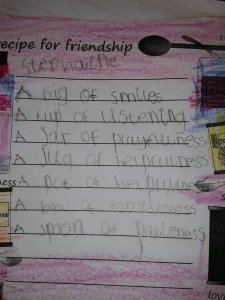 recipe for friendship
Stephanie
A bag of smiles
A cup of listening
A jar of prayerfulness
A jug of helpfulness
A pot of
A box of forgiveness
A spoon of
ness
lov